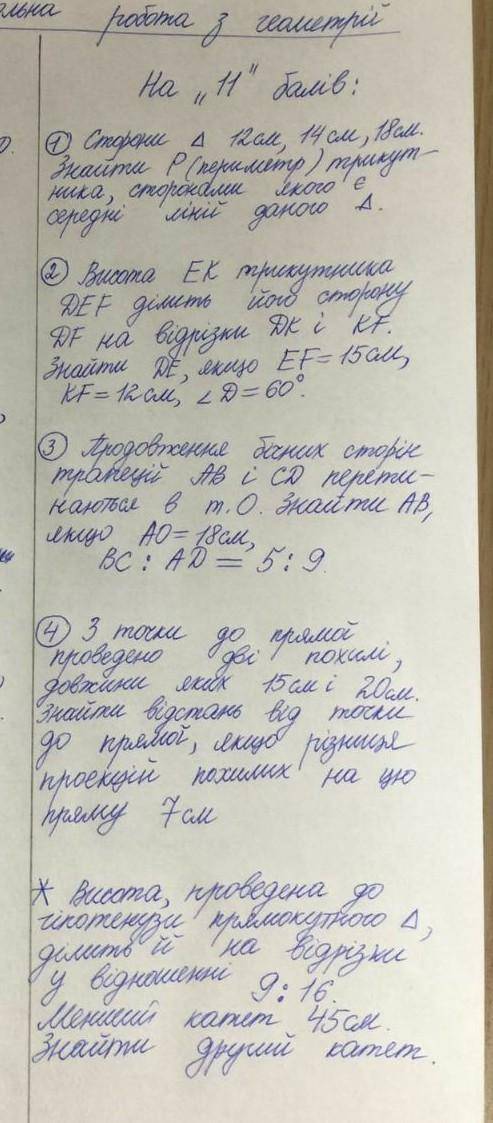 робота з геометрій
На „11" балів:
① Сторони Δ 12см, 14см, 18см.
Знайти P (периметр) трикут-
ника, сторонами якого є
середні ліній даного Δ.
② Висота EK трикутника
DEF ділить його сторону
DF на відрізки DK і KF.
Знайти DE, якщо EF=15см,
KF=12см, ∠D=60°.
③ Продовження бічних сторін
трапецій AB і CD перети-
наються в т.O. Знайти AB,
якщо AO=18см,
BC : AD = 5 : 9.
④ З точки до прямої
проведено дві похилі,
довжини яких 15см і 20см.
Знайти відстань від точки
до прямої, якщо різниця
проекцій похилих на цю
пряму 7см
* Висота, проведена до
гіпотенузи прямокутного Δ,
ділить її на відрізки
у відношенні 9:16.
Менший катет 45см.
Знайти другий катет.